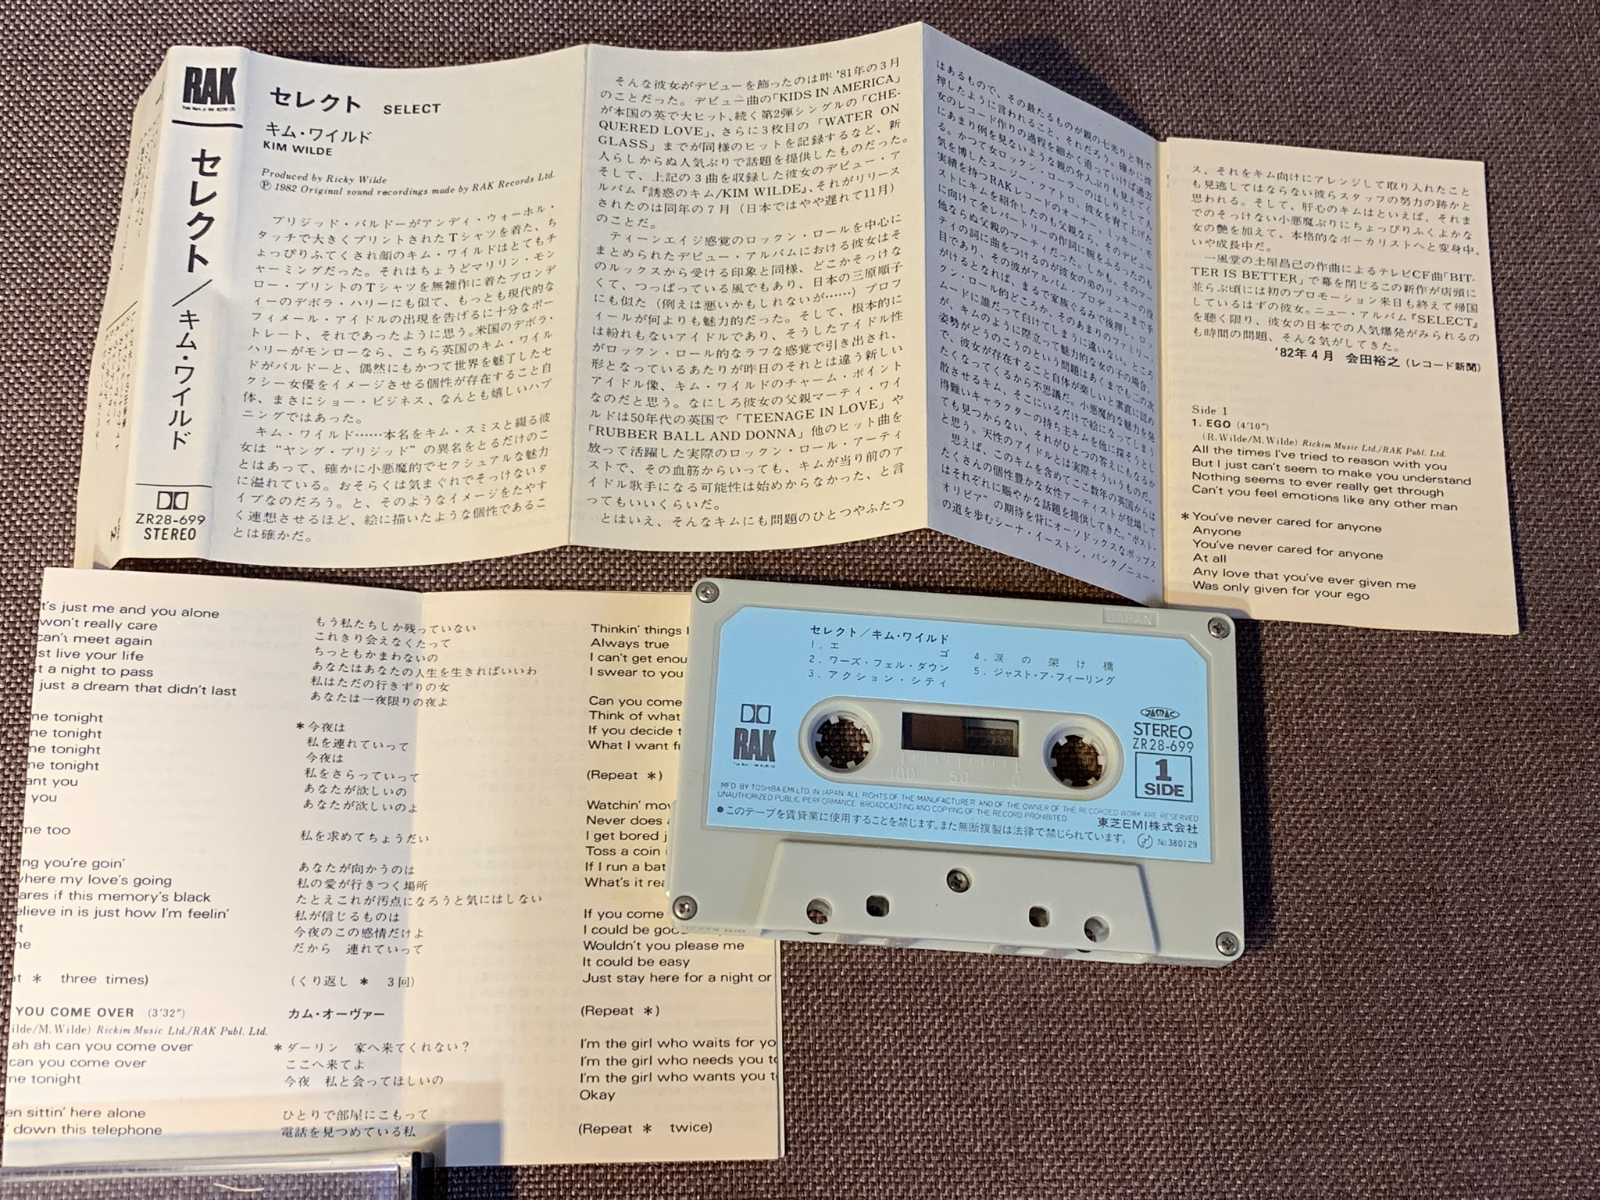 RAK
セレクト／キム・ワイルド
ZR28-699
STEREO
セレクト SELECT
キム・ワイルド
KIM WILDE
Produced by Ricky Wilde
Ⓟ 1982 Original sound recordings made by RAK Records Ltd.
ブリジッド・バルドーがアンディ・ウォーホル・
タッチで大きくプリントされたTシャツを着た、ち
ょっぴりふてくされ顔のキム・ワイルドはとてもチ
ャーミングだった。それはちょうどマリリン・モン
ロー・プリントのTシャツを無雑作に着たブロンデ
ィーのデボラ・ハリーにも似て、もっとも現代的な
フィメール・アイドルの出現を告げるに十分なポー
トレート、それであったように思う。米国のデボラ・
ハリーがモンローなら、こちら英国のキム・ワイル
ドがバルドーと、偶然にもかつて世界を魅了したセ
クシー女優をイメージさせる個性が存在すること自
体、まさにショー・ビジネス、なんとも嬉しいハプ
ニングではあった。
キム・ワイルド……本名をキム・スミスと綴る彼
女は“ヤング・ブリジッド”の異名をとるだけのこ
とはあって、確かに小悪魔的でセクシュアルな魅力
に溢れている。おそらくは気まぐれでそっけないタ
イプなのだろう。と、そのようなイメージをたやす
く連想させるほど、絵に描いたような個性であるこ
とは確かだ。
そんな彼女がデビューを飾ったのは昨'81年の3月
のことだった。デビュー曲の「KIDS IN AMERICA」
が本国の英で大ヒット、続く第2弾シングルの「CHE-
QUERED LOVE」、さらに3枚目の「WATER ON
GLASS」までが同様のヒットを記録するなど、新
人らしからぬ人気ぶりで話題を提供したものだった。
そして、上記の3曲を収録した彼女のデビュー・ア
ルバム『誘惑のキム/KIM WILDE』、それがリリース
されたのは同年の7月（日本ではやや遅れて11月）
のことだ。
ティーンエイジ感覚のロックン・ロールを中心に
まとめられたデビュー・アルバムにおける彼女はそ
のルックスから受ける印象と同様、どこかそっけな
くて、つっぱっている風でもあり、日本の三原順子
にも似た（例えは悪いかもしれないが……）プロフ
ィールが何よりも魅力的だった。そして、根本的に
は紛れもないアイドルであり、そうしたアイドル性
がロックン・ロール的なラフな感覚で引き出され、
形となっているあたりが昨日のそれとは違う新しい
アイドル像、キム・ワイルドのチャーム・ポイント
なのだと思う。なにしろ彼女の父親マーティ・ワイ
ルドは50年代の英国で「TEENAGE IN LOVE」や
「RUBBER BALL AND DONNA」他のヒット曲を
放って活躍した実際のロックン・ロール・アーティ
ストで、その血筋からいっても、キムが当り前のア
イドル歌手になる可能性は始めからなかった、と言
ってもいいくらいだ。
とはいえ、そんなキムにも問題のひとつやふたつ
はあるもので、その最たるものが親の七光りと判で
押したように言われること、それだろう。確かに彼
女のレコード作りの過程を細かく追っていけば過去
にあまり例を見ないような親の介入ぶりも見えてく
る。かつて女ロックン・ローラーのはしりとして人
気を博したスージー・クアトロ、彼女を育て上げた
実績を持つRAKレコードのオーナー、ミッキー・モ
ストにキムを紹介したのも父親なら、そのデビュー
に向けて全レパートリーの作詞に腕をふるったのも
他ならぬ父親のマーティだった。しかも、そのマー
ティの詞に曲をつけるのが彼女の弟のリッキーの役
目であり、その彼がアルバム・プロデュースまで手
がけるとなれば、まるで家族ぐるみで後押し、ロッ
クン・ロール的どころか、そのあまりのファミリー・
ムードに誰だって白けてしまうに違いない。ところ
が、キムのように際立って魅力的な女の子の場合、
姿勢がどうのこうのという問題はあくまでも二の次
で、彼女が存在すること自体が楽しいと素直に認め
たくなってくるから不思議だ。小悪魔的な魅力を発
散させるキム、そこにいるだけで絵になってしまう
得難いキャラクターの持ち主キムを他に探そうとし
ても見つからない、それがひとつの答えにもなるか
と思う。天性のアイドルとは実際そういうものだ。
思えば、このキムを含めてここ数年の英国からは
たくさんの個性豊かな女性アーティストが登場して
はそれぞれに賑やかな話題を提供してきた。“ポスト・
オリビア”の期待を背にオーソドックスなポップス
の道を歩むシーナ・イーストン、パンク／ニュー・
ス、それをキム向けにアレンジして取り入れたこと
も見逃してはならない彼らスタッフの努力の跡かと
思われる。そして、肝心のキムはといえば、それま
でのそっけない小悪魔ぶりにちょっぴりふくよかな
女の艶を加えて、本格的なボーカリストへと変身中、
いや成長中だ。
一風堂の土屋昌己の作曲によるテレビCF曲「BIT-
TER IS BETTER」で幕を閉じるこの新作が店頭に
並らぶ頃には初のプロモーション来日も終えて帰国
しているはずの彼女。ニュー・アルバム『SELECT』
を聴く限り、彼女の日本での人気爆発がみられるの
も時間の問題、そんな気がしてきた。
'82年4月 会田裕之（レコード新聞）
Side 1
1. EGO (4'10")
(R.Wilde/M.Wilde) Rickim Music Ltd./RAK Publ. Ltd.
All the times I've tried to reason with you
But I just can't seem to make you understand
Nothing seems to ever really get through
Can't you feel emotions like any other man
* You've never cared for anyone
Anyone
You've never cared for anyone
At all
Any love that you've ever given me
Was only given for your ego
t's just me and you alone
won't really care
can't meet again
st live your life
t a night to pass
just a dream that didn't last
me tonight
ne tonight
me tonight
me tonight
ant you
you
me too
ng you're goin'
where my love's going
ares if this memory's black
elieve in is just how I'm feelin'
t
me
at * three times)
YOU COME OVER (3'32")
ilde/M.Wilde) Rickim Music Ltd./RAK Publ. Ltd.
ah ah can you come over
can you come over
me tonight
en sittin' here alone
' down this telephone
もう私たちしか残っていない
これきり会えなくたって
ちっともかまわないの
あなたはあなたの人生を生きればいいわ
私はただの行きずりの女
あなたは一夜限りの夜よ
* 今夜は
私を連れていって
今夜は
私をさらっていって
あなたが欲しいの
あなたが欲しいのよ
私を求めてちょうだい
あなたが向かうのは
私の愛が行きつく場所
たとえこれが汚点になろうと気にはしない
私が信じるものは
今夜のこの感情だけよ
だから 連れていって
（くり返し * 3回）
カム・オーヴァー
* ダーリン 家へ来てくれない？
ここへ来てよ
今夜 私と会ってほしいの
ひとりで部屋にこもって
電話を見つめている私
Thinkin' things
Always true
I can't get enou
I swear to you
Can you come
Think of what
If you decide t
What I want f
(Repeat *)
Watchin' mov
Never does
I get bored
Toss a coin i
If I run a bat
What's it rea
If you come
I could be goo
Wouldn't you please me
It could be easy
Just stay here for a night or
(Repeat *)
I'm the girl who waits for yo
I'm the girl who needs you to
I'm the girl who wants you t
Okay
(Repeat * twice)
JAPAN
セレクト／キム・ワイルド
1. エゴ
2. ワーズ・フェル・ダウン
3. アクション・シティ
4. 涙の架け橋
5. ジャスト・ア・フィーリング
RAK
STEREO
ZR28-699
1
SIDE
100 50 0
MFD. BY TOSHIBA EMI LTD. IN JAPAN. ALL RIGHTS OF THE MANUFACTURER AND OF THE OWNER OF THE RECORDED WORK ARE RESERVED
UNAUTHORIZED PUBLIC PERFORMANCE BROADCASTING AND COPYING OF THE RECORD PROHIBITED.
東芝EMI株式会社
●このテープを賃貸業に使用することを禁じます。また無断複製は法律で禁じられています。
No 380129